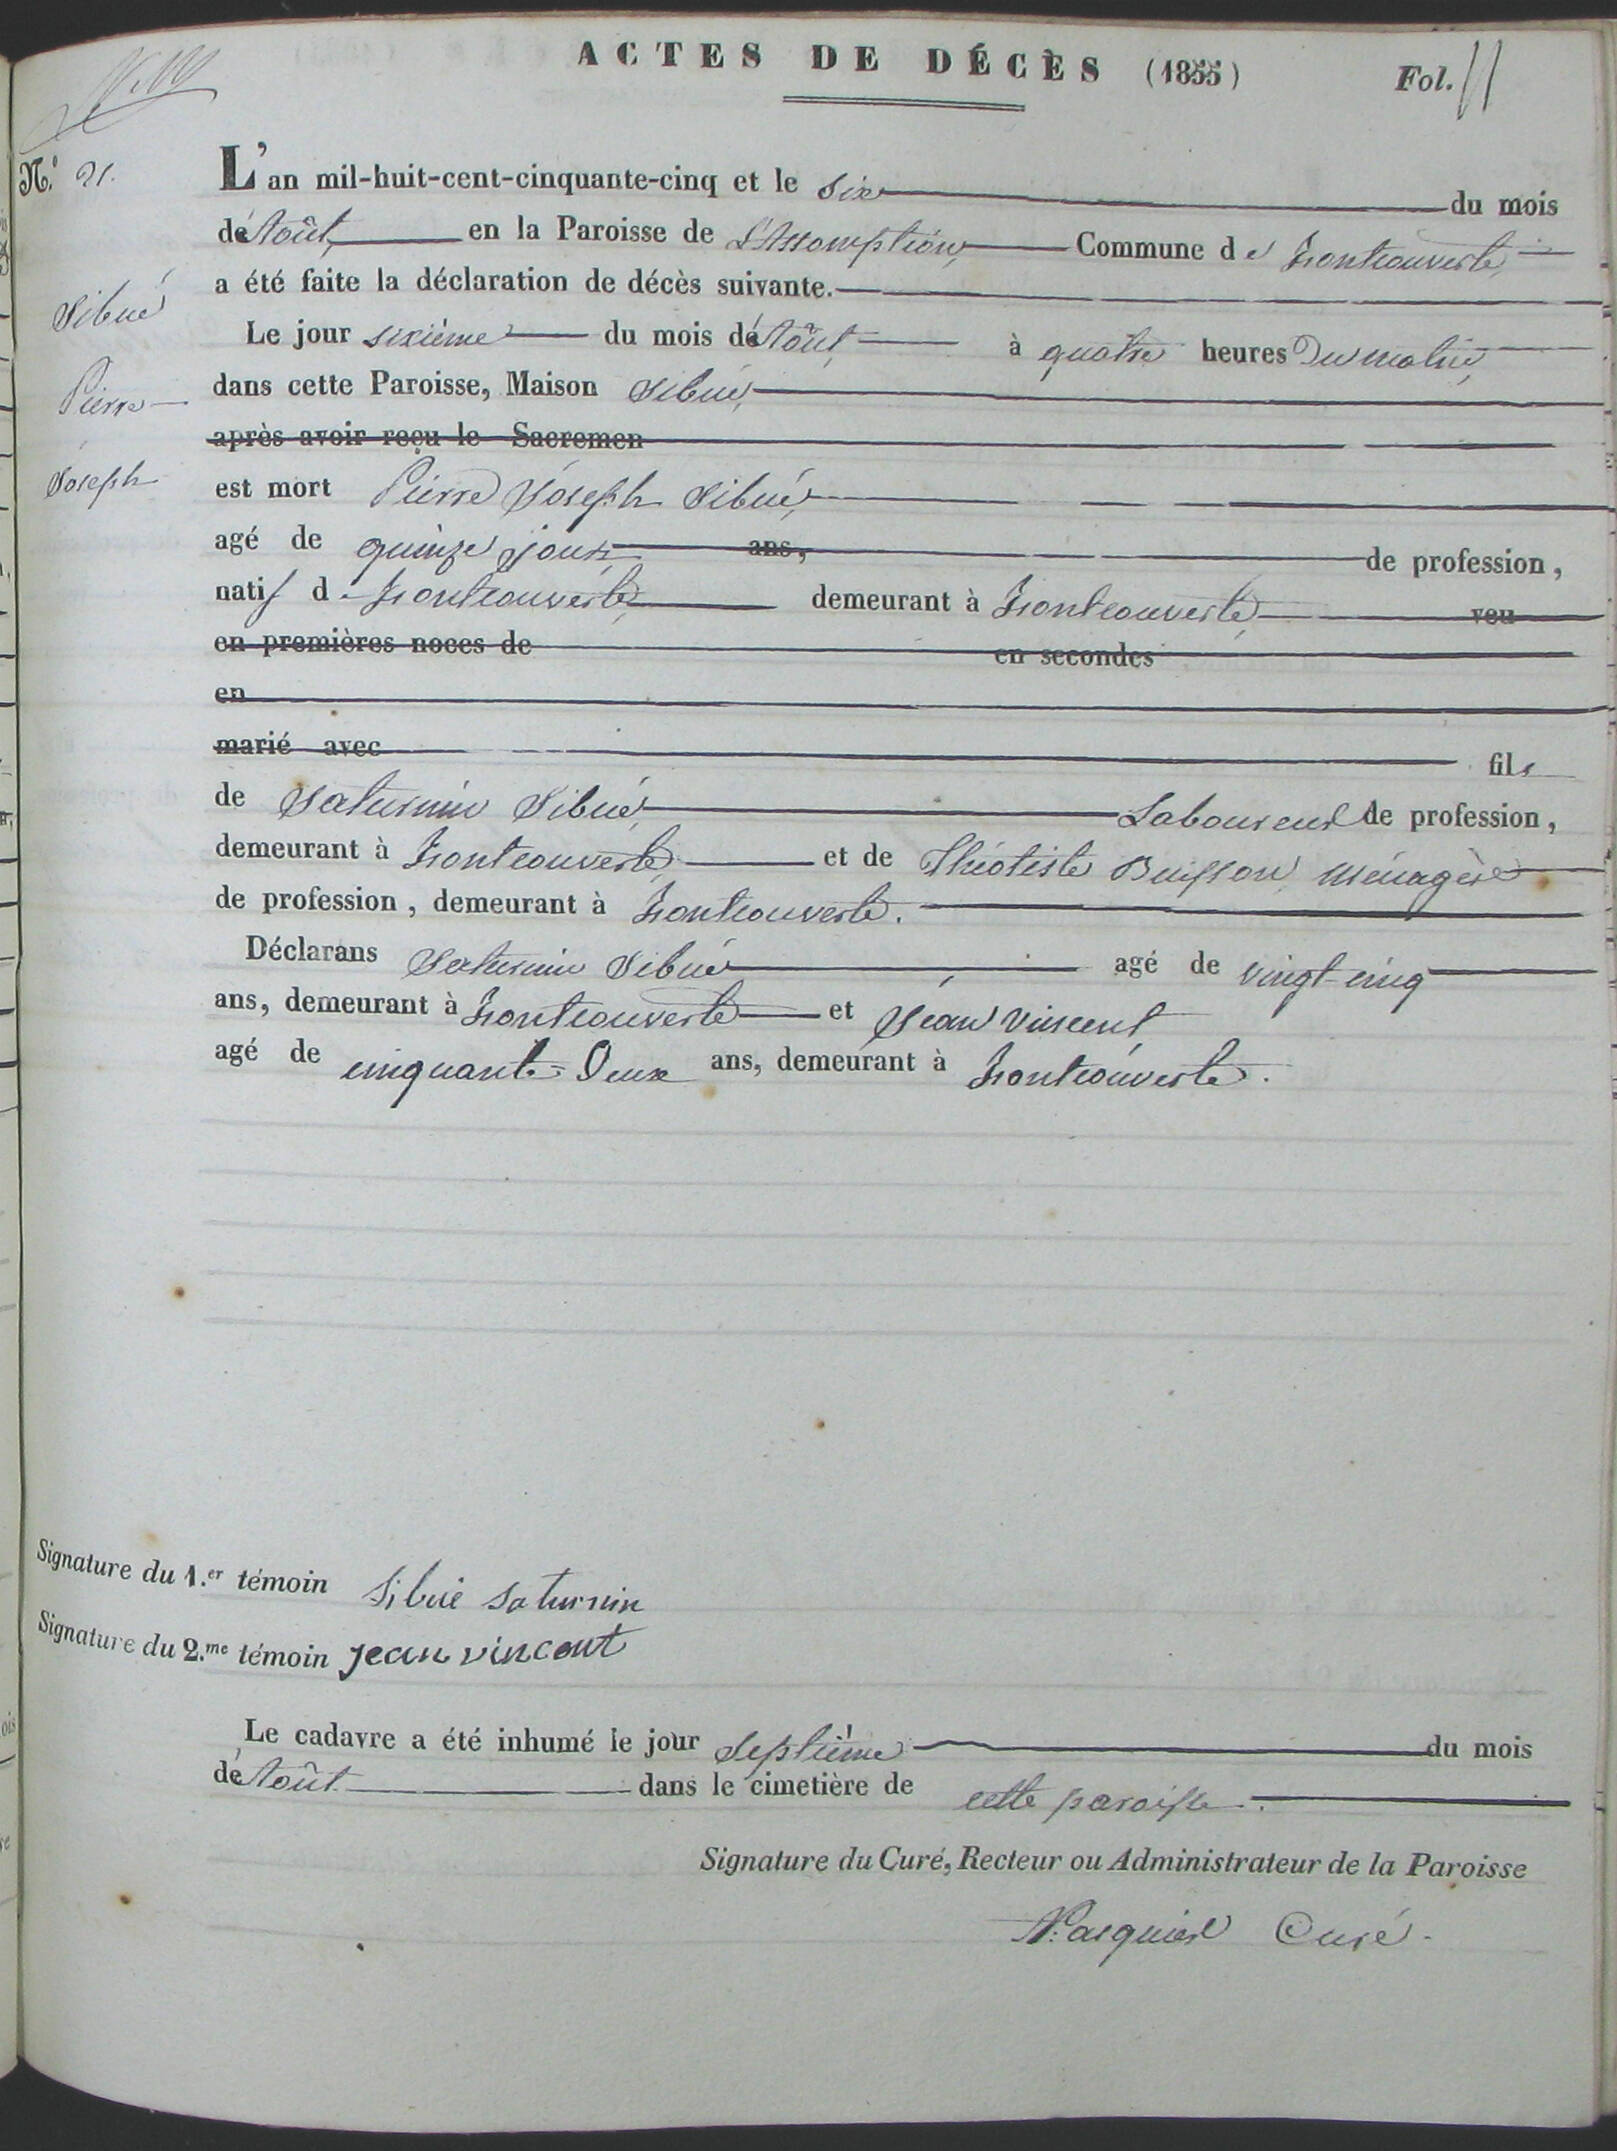 ACTES DE DÉCÈS (1855) Fol. 11
N.º 21.
L'an mil-huit-cent-cinquante-cinq et le six du mois
d'Août, en la Paroisse de L'Assomption, Commune de Frontcouverte,
a été faite la déclaration de décès suivante.
Sibué
Pierre
Joseph
Le jour sixième du mois d'Août à quatre heures Du matin,
dans cette Paroisse, Maison Sibué,
après avoir reçu le Sacremen
est mort Pierre Joseph Sibué,
agé de quinze jours, ans, de profession,
natif de Frontcouverte, demeurant à Frontcouverte, veu
en premières noces de en secondes
en
marié avec fils
de Saturnin Sibué, Laboureur de profession,
demeurant à Frontcouverte, et de Théotiste Buisson ménagère
de profession, demeurant à Frontcouverte.
Déclarans Saturnin Sibué agé de vingt-cinq
ans, demeurant à Frontcouverte et Jean Vincent
agé de cinquante-Deux ans, demeurant à Frontcouverte.
Signature du 1.er témoin Sibué saturnin
Signature du 2.me témoin jean vincent
Le cadavre a été inhumé le jour septième du mois
d'Août dans le cimetière de cette paroisse.
Signature du Curé, Recteur ou Administrateur de la Paroisse
Pasquier Curé.